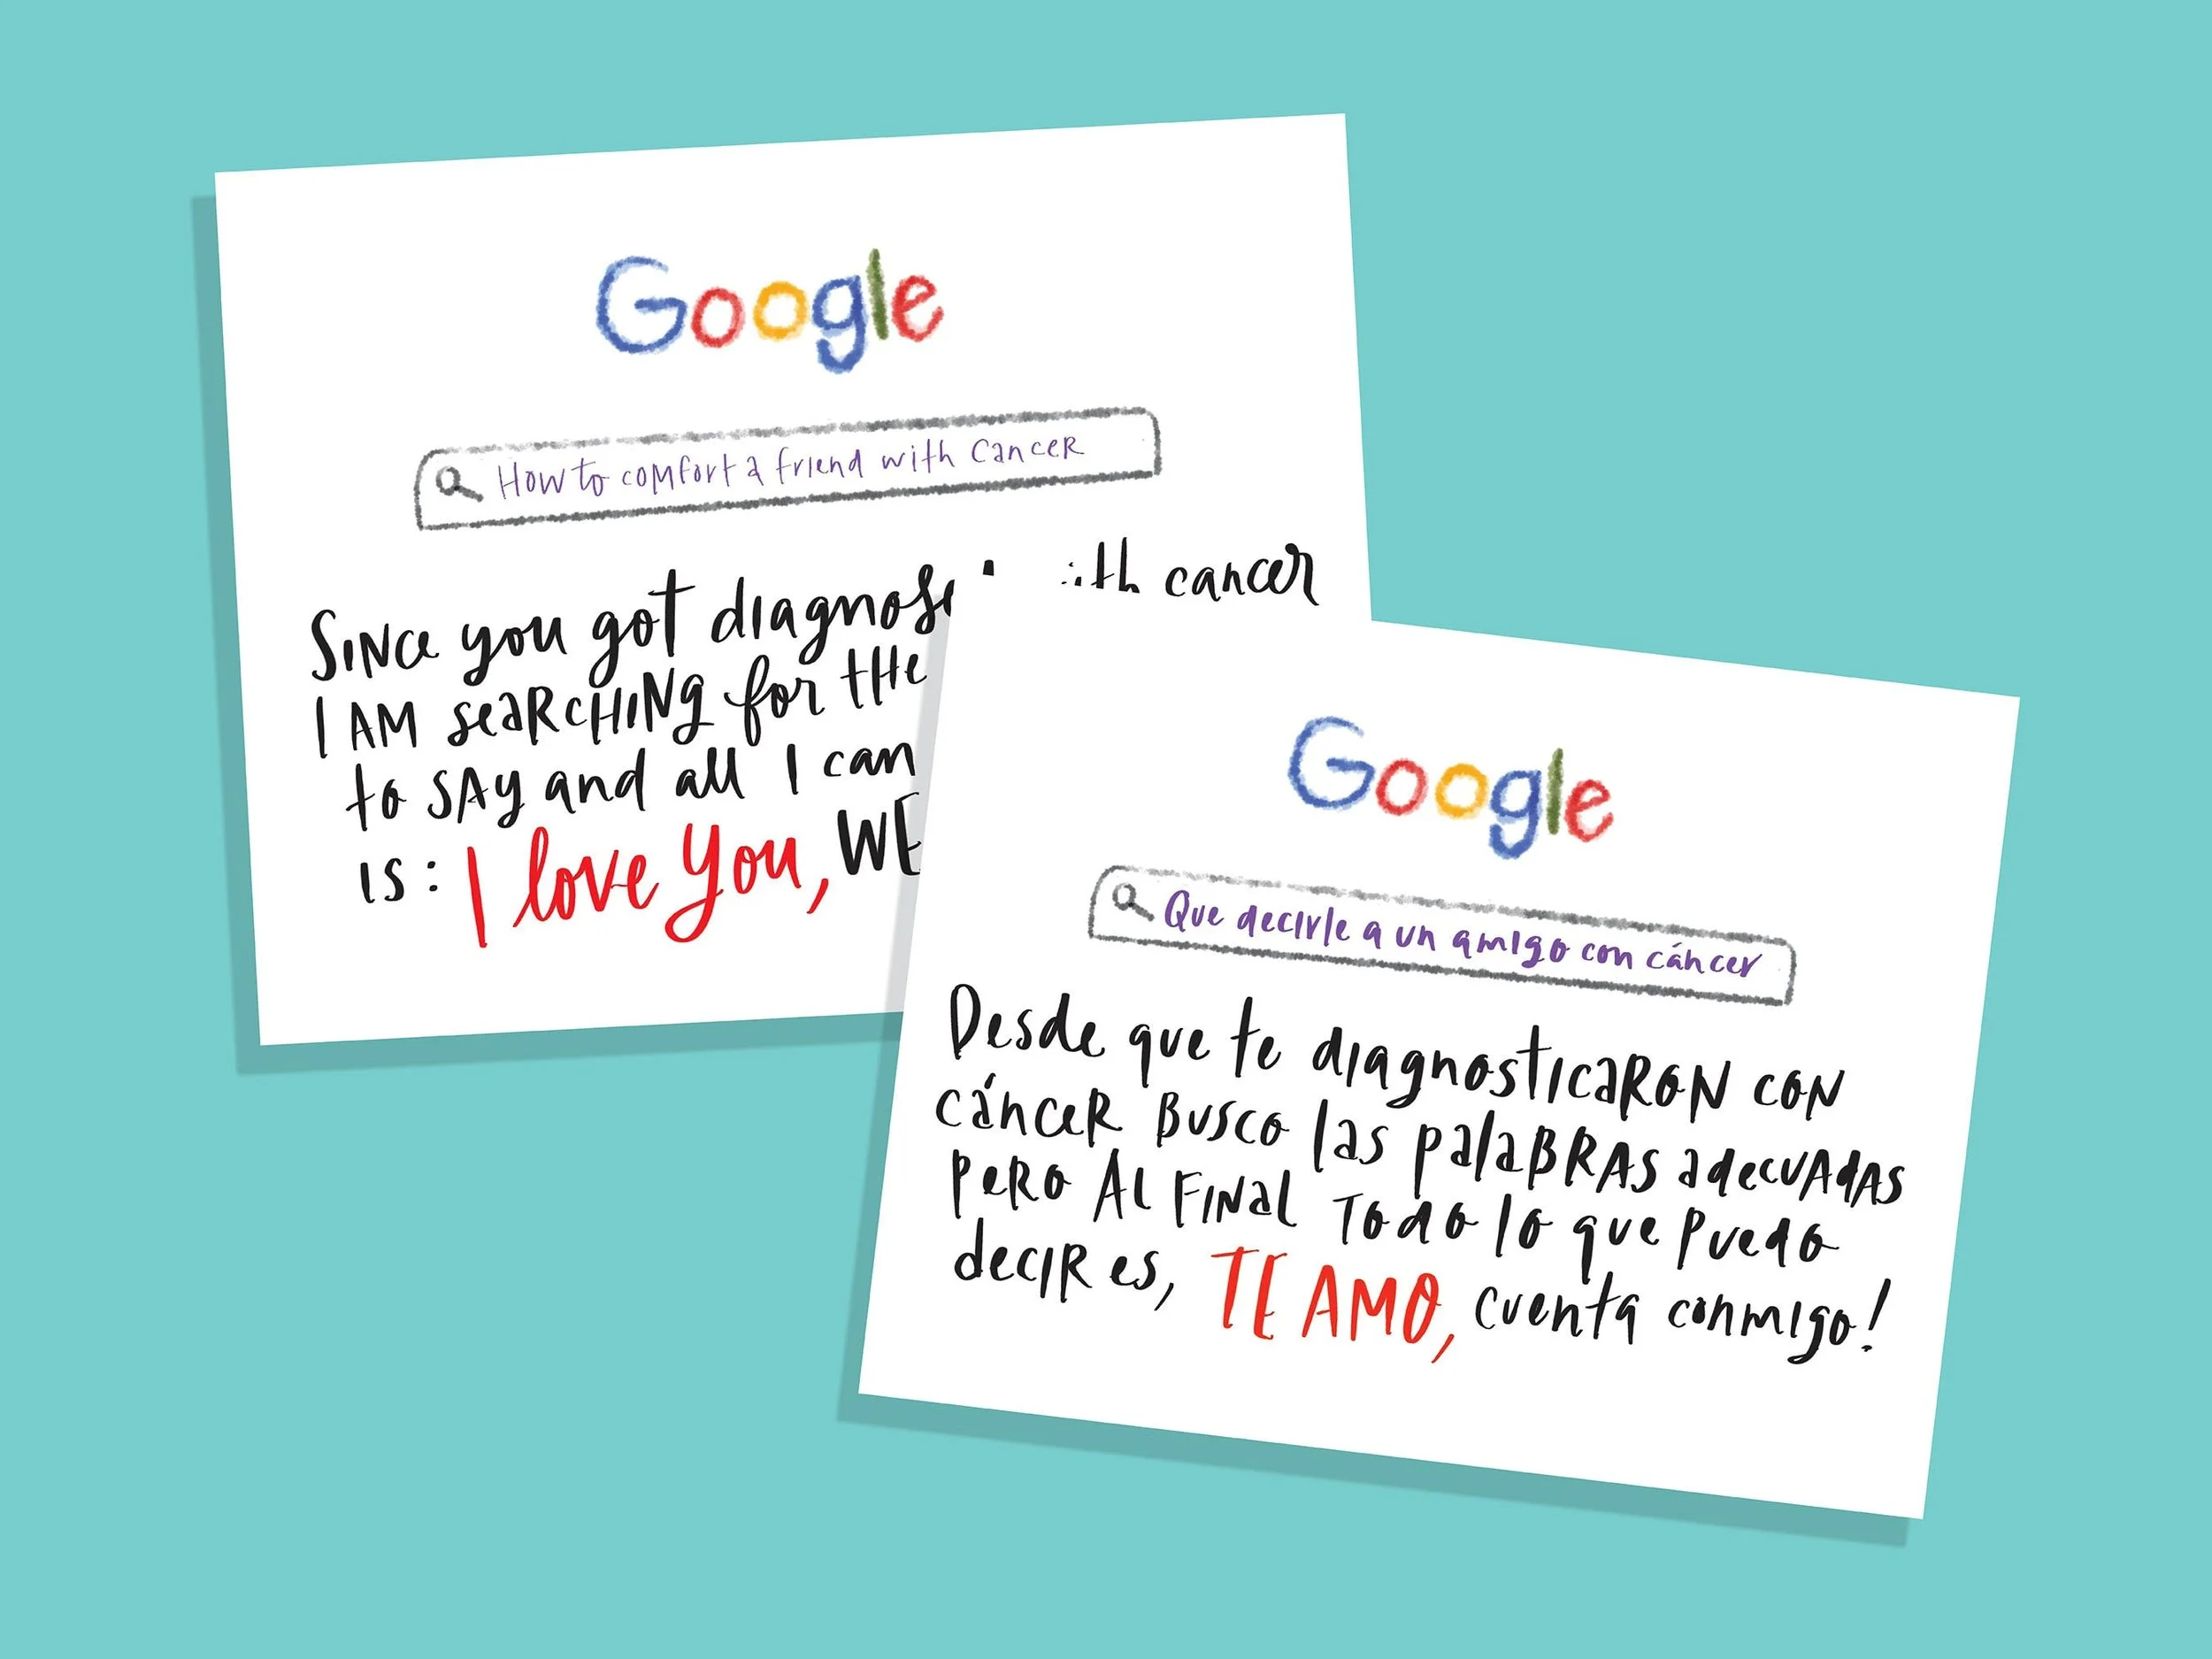 Google
How to comfort a friend with cancer
Since you got with cancer
I AM SEARCHING for THE
to SAY and all I can
IS: I love you, WE
Google
Que decirle a un amigo con cáncer
Desde que te diagnosticaron con
cáncer busco las palabras adecuadas
pero al final todo lo que puedo
decir es, TE AMO, cuenta conmigo!